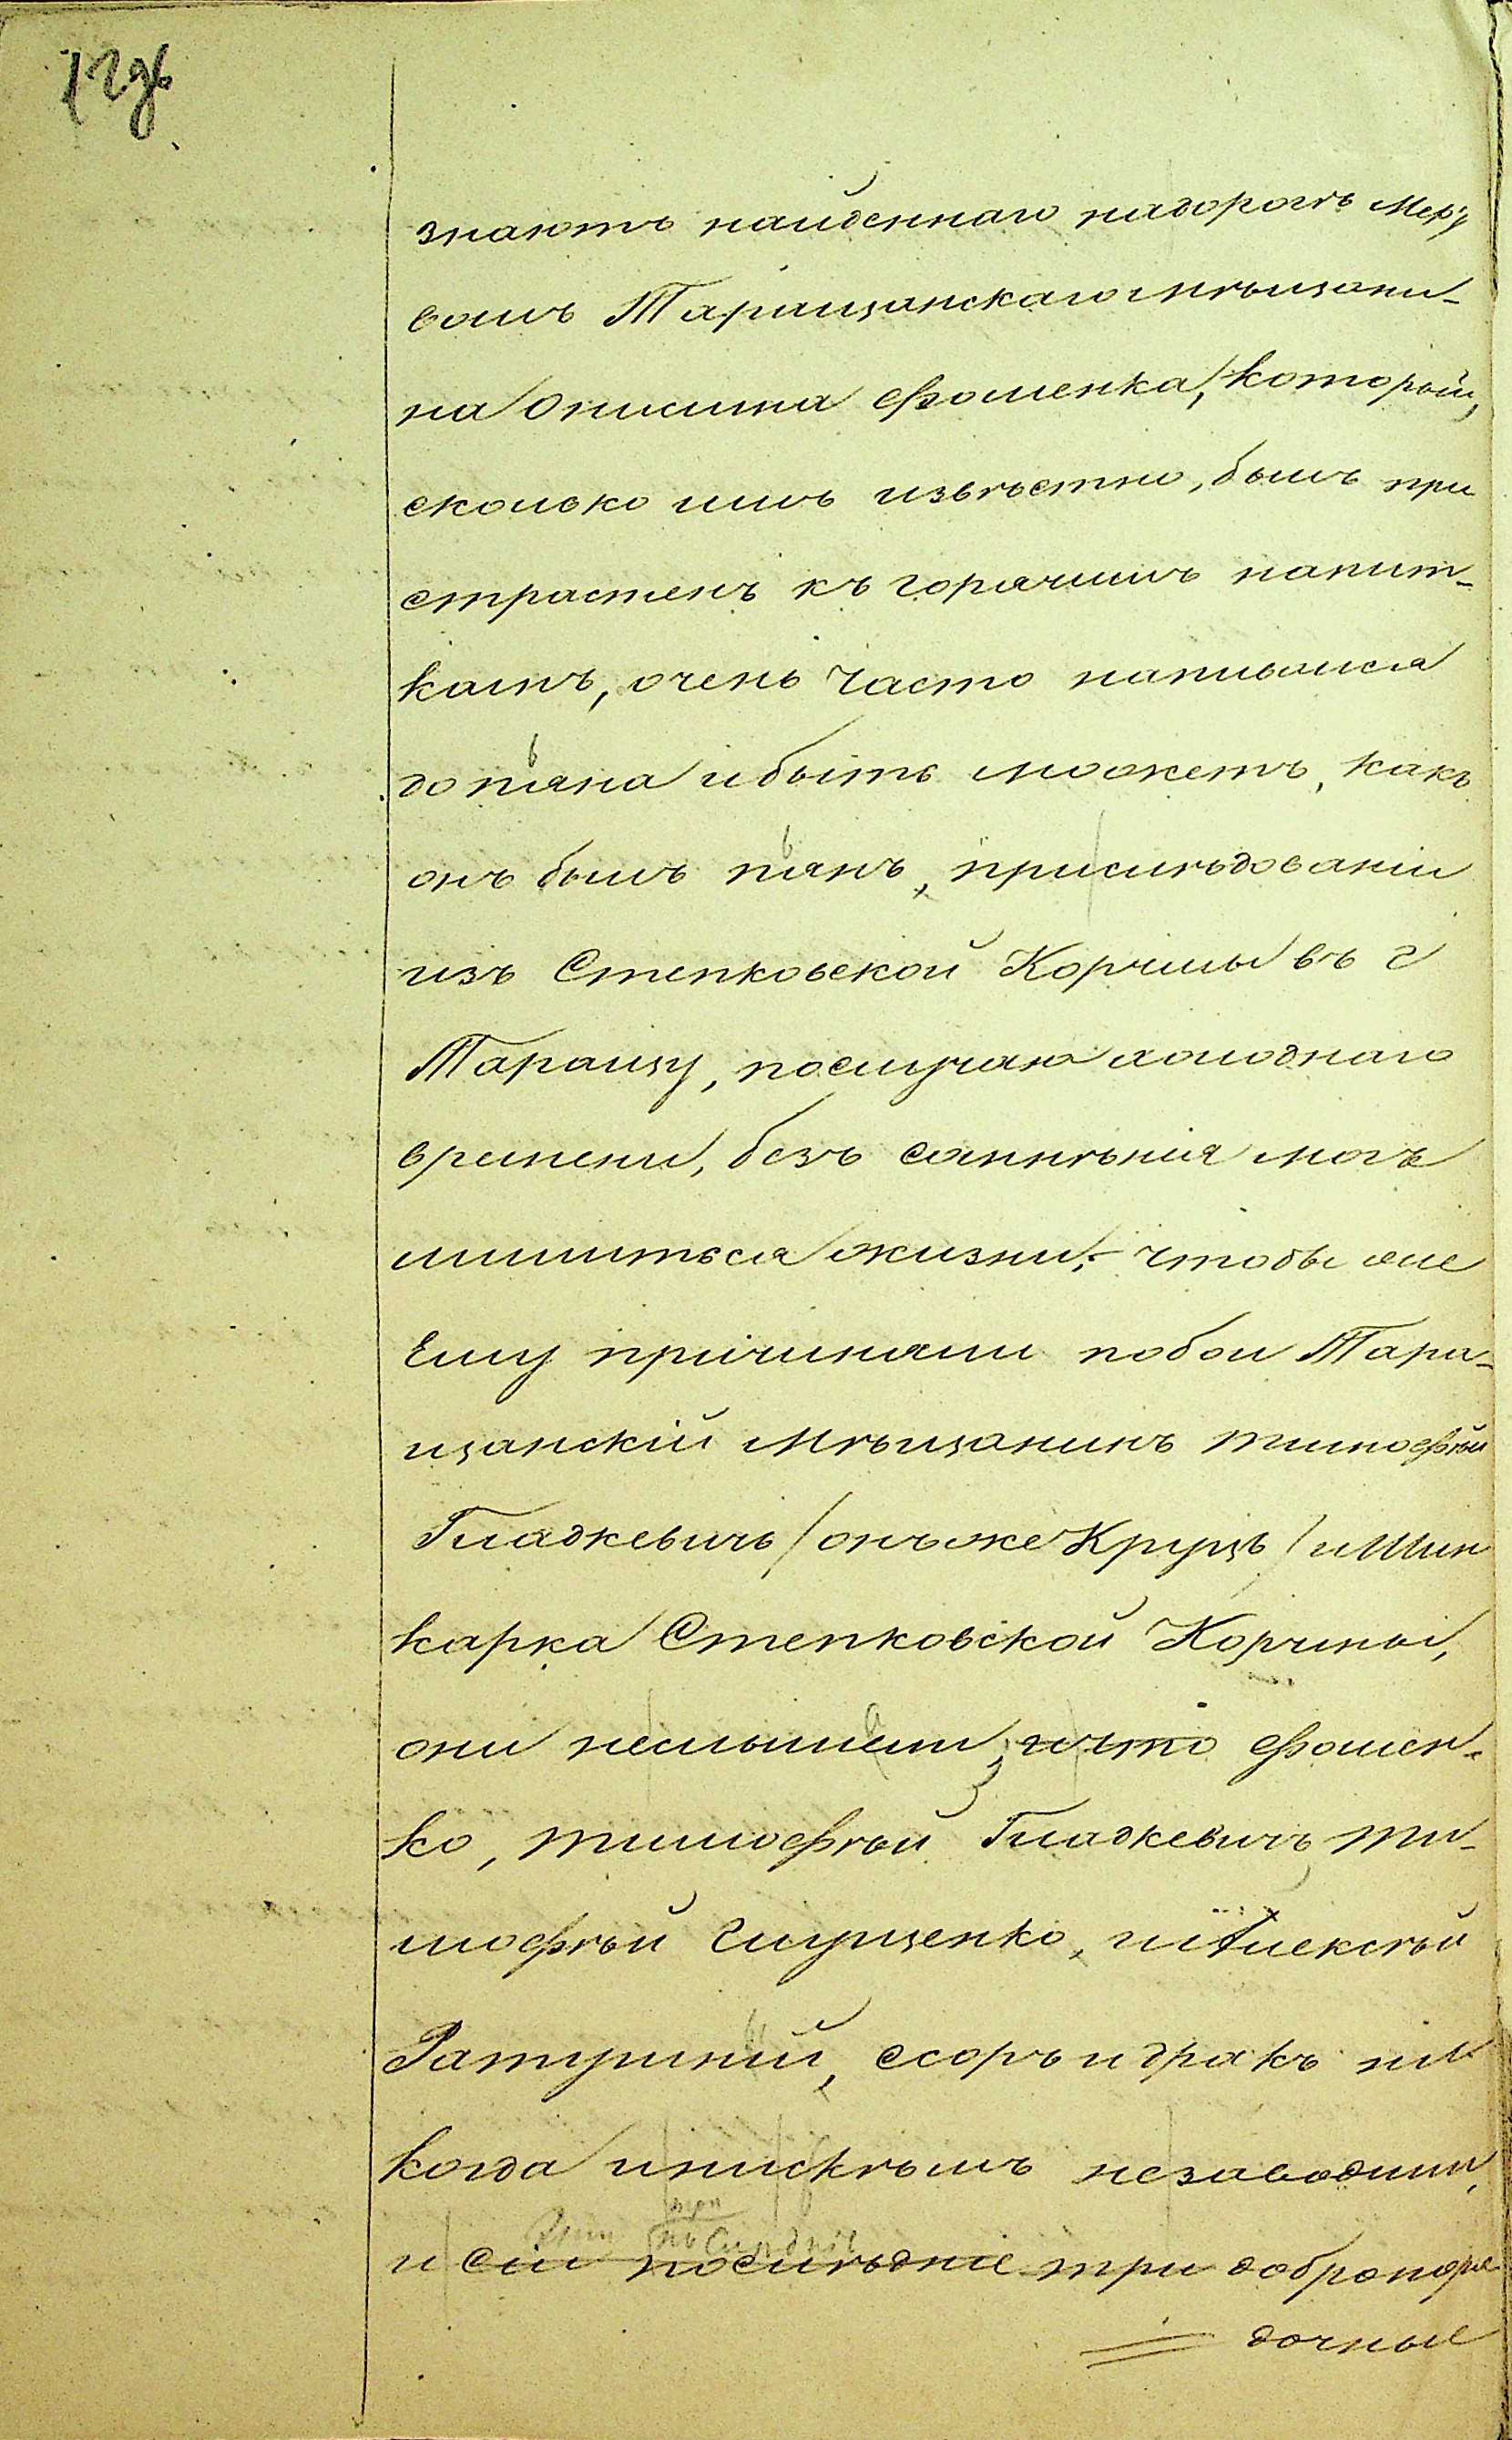 знаютъ найденнаго надорогѣ мер
вымъ Таращанскаго мѣщани-
на Онисима Фоменка, который,
сколько имъ извѣстно, былъ при
страстенъ къ горячимъ напит-
камъ, очень часто напивался
до пьяна и быть можетъ, какъ
онъ былъ пьянъ, прислѣдованіи
изъ Степковской Корчмы въ г
Таращу, послучаю холоднаго
времени, безъ сомнѣнія могъ
лишиться жизни, чтобы же
Ему причиняли побои Тара-
щанскій мѣщанинъ Тимофѣй
Гладкевичъ / онъже Круцъ / и Шин
карка Степковской Корчмы,
они неслышали, и что Фомен-
ко, Тимофѣй Гладкевичъ, Ти-
мофѣй Глущенко, и Алексѣй
Ратушный, ссоръ и дракъ ни
когда инискѣмъ незаводили,
и сіи послѣдніе три добропоря
дочные